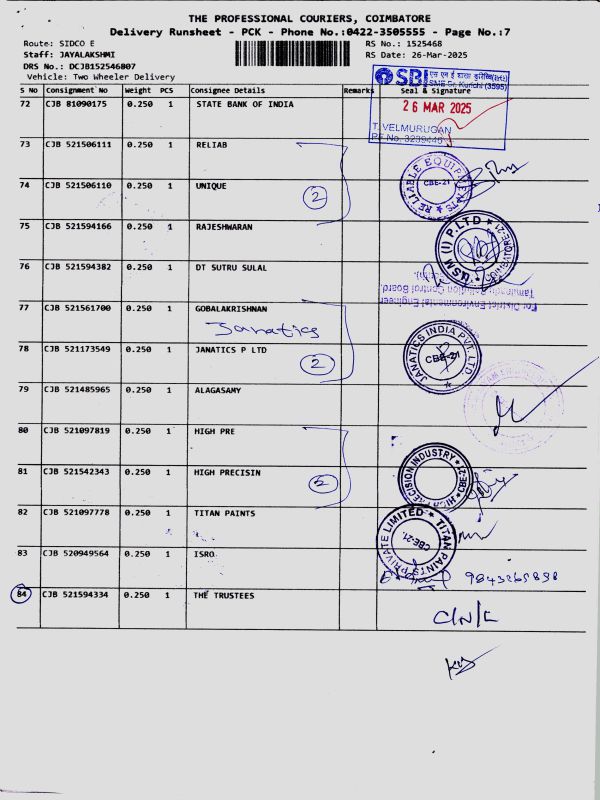 THE PROFESSIONAL COURIERS, COIMBATORE
Delivery Runsheet - PCK - Phone No.:0422-3505555 - Page No.:7
Route: SIDCO E
RS No.: 1525468
Staff: JAYALAKSHMI
RS Date: 26-Mar-2025
DRS No.: DCJB152546807
Vehicle: Two Wheeler Delivery
S No Consignment No Weight PCS Consignee Details Remarks Seal & Signature
72 CJB 81090175 0.250 1 STATE BANK OF INDIA
SBI
26 MAR 2025
T. VELMURUGAN
73 CJB 521506111 0.250 1 RELIAB
RELIABLE EQUIPMENTS
CBE-21
74 CJB 521506110 0.250 1 UNIQUE
2
75 CJB 521594166 0.250 1 RAJESHWARAN
76 CJB 521594382 0.250 1 DT SUTRU SULAL
For District Environmental Engineer
Tamilnadu Pollution Control Board,
77 CJB 521561700 0.250 1 GOBALAKRISHNAN
Janatics
JANATICS INDIA PVT. LTD.
CBE-21
78 CJB 521173549 0.250 1 JANATICS P LTD
2
79 CJB 521485965 0.250 1 ALAGASAMY
80 CJB 521097819 0.250 1 HIGH PRE
81 CJB 521542343 0.250 1 HIGH PRECISIN
2
HIGH PRECISION INDUSTRY
CBE-21
82 CJB 521097778 0.250 1 TITAN PAINTS
TITAN PAINTS PRIVATE LIMITED
CBE-21.
83 CJB 520949564 0.250 1 ISRO
84 CJB 521594334 0.250 1 THE TRUSTEES
C/N/L